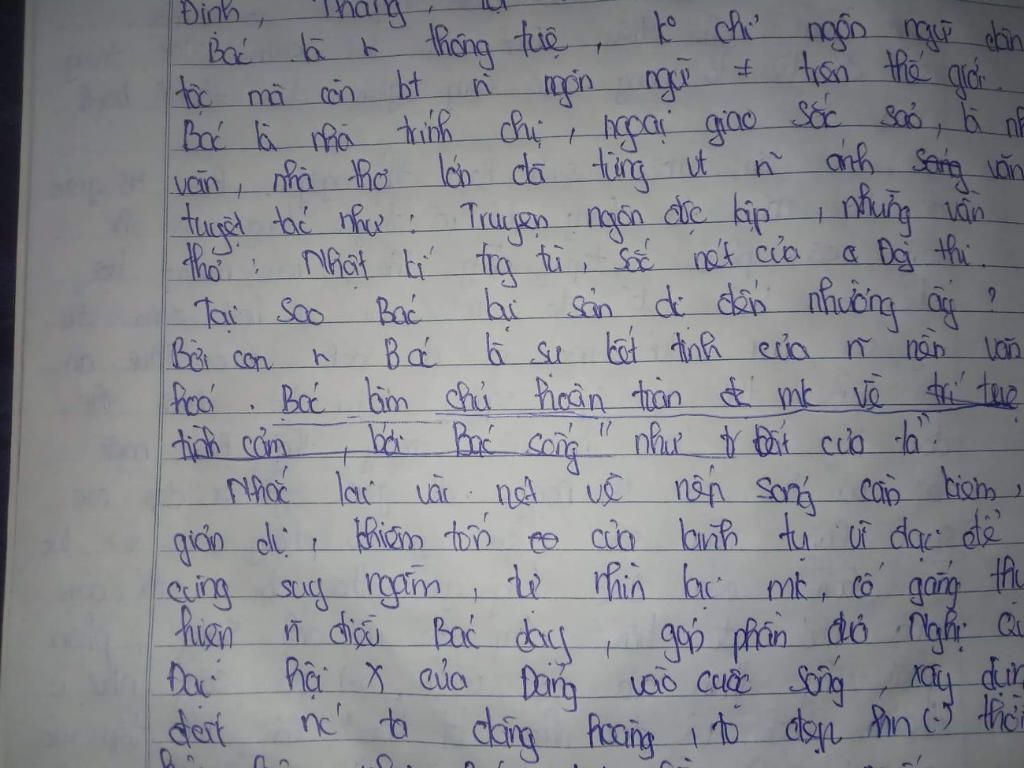 Đinh, Thăng,
Bác là n thông tuệ, k° chỉ ngôn ngữ dân
tộc mà còn bt n̄ ngôn ngữ ≠ trên thế giới.
Bác là nhà trính chị, ngoại giao sắc sảo, là nh
văn, nhà thơ lớn đã từng vt n̄ ánh sáng văn
tuyệt tác như: Truyen ngôn độc lập, những vần
thơ: Nhật kí trg tù, sắc nét của
Tại sao Bác lại sản dị đến nhường ấy?
Bởi con n Bác là sự kết tinh của n̄ nền văn
hoá. Bác làm chủ hoàn toàn mk về trí tuệ
tình cảm, bởi Bác sống "như
Nhắc lại vài nét về nếp sống cần kiệm,
giản dị, khiêm tốn của lãnh tụ vĩ đại để
cùng suy ngẫm, tự nhìn lại mk, cố gắng thự
hiện n̄ điều Bác dạy, góp phần đưa Nghị
Đại hội X của Đảng vào cuộc sống, xây dựn
đất nc' ta đàng hoàng, to đẹp hơn (-) thời